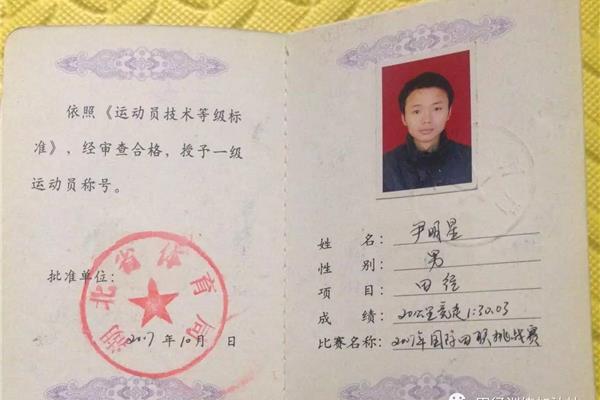 依照《运动员技术等级标
准》，经审查合格，授予一级
运动员称号。
湖北省体育局
批准单位：
2017年10月 日
姓 名：尹明星
性 别：男
项 目：田径
成 绩：20公里竞走1:30.03
比赛名称：2017年国际田联挑战赛